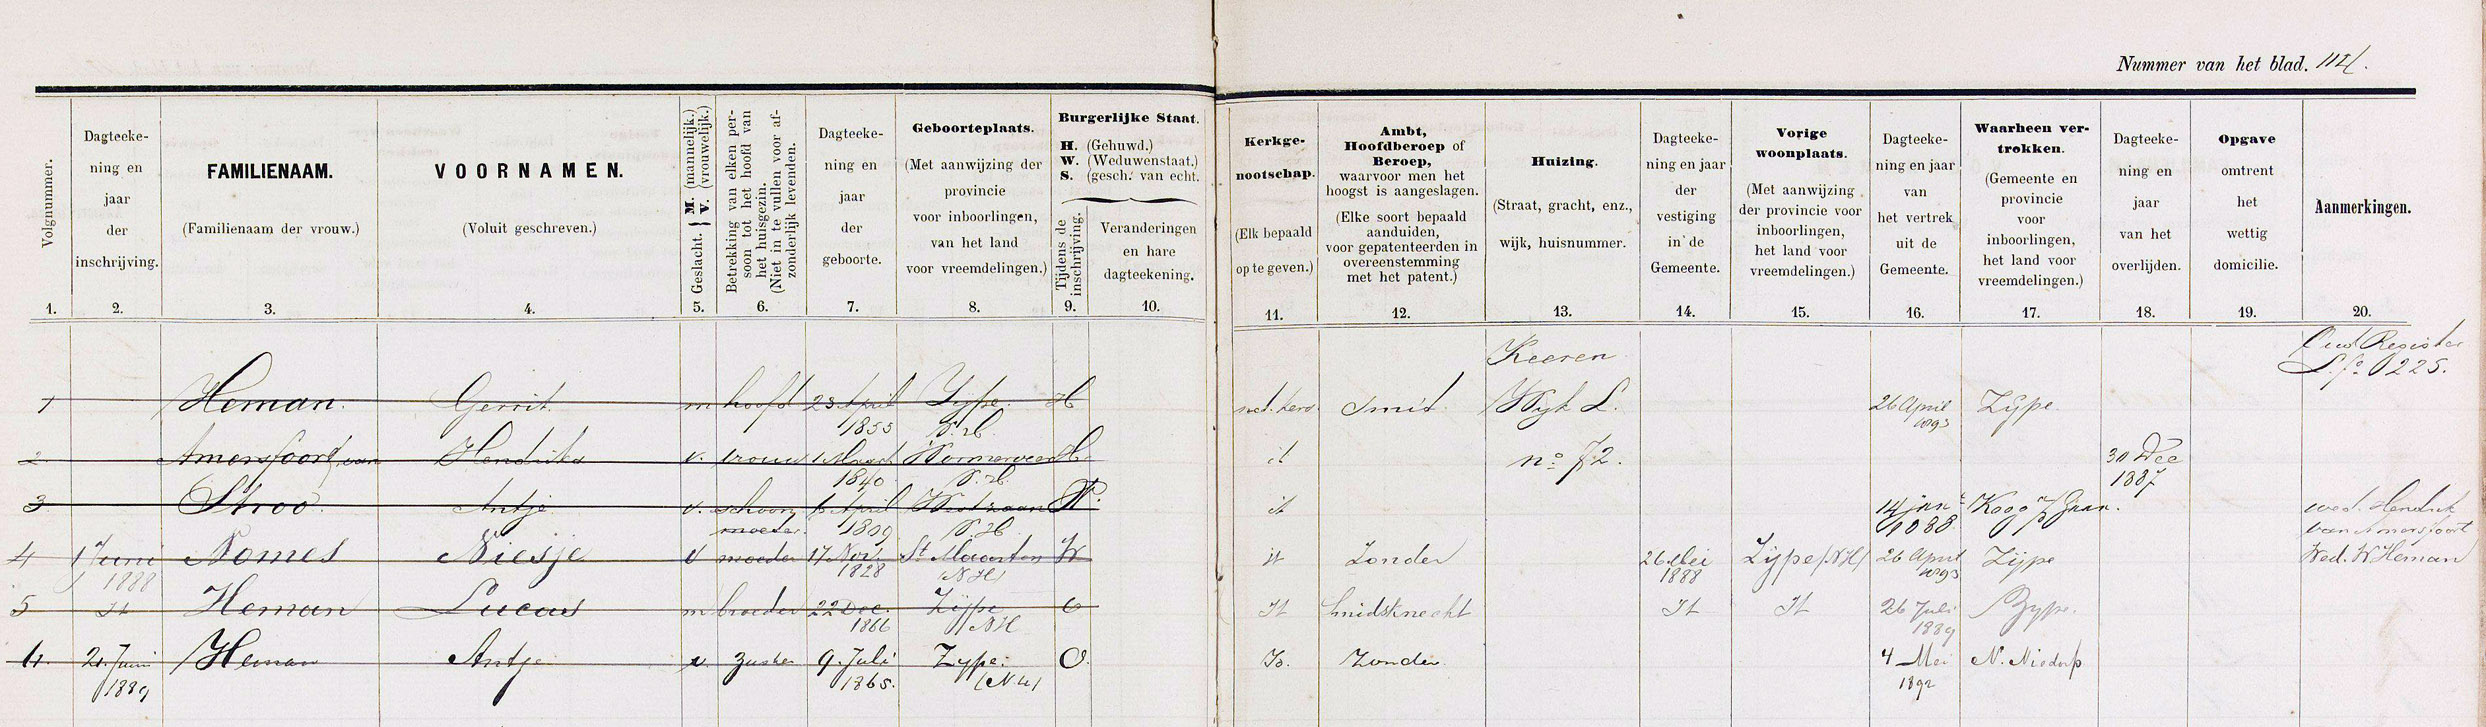 Nummer van het blad. 112
Volgnummer.
1.
Dagteeke-
ning en
jaar
der
inschrijving.
2.
FAMILIENAAM.
(Familienaam der vrouw.)
3.
VOORNAMEN.
(Voluit geschreven.)
4.
Geslacht. { M. (mannelijk.)
V. (vrouwelijk.)
5.
Betrekking van elken per-
soon tot het hoofd van
het huisgezin.
(Niet in te vullen voor af-
zonderlijk levenden.
6.
Dagteeke-
ning en
jaar
der
geboorte.
7.
Geboorteplaats.
(Met aanwijzing der
provincie
voor inboorlingen,
van het land
voor vreemdelingen.)
8.
Burgerlijke Staat.
H. (Gehuwd.)
W. (Weduwenstaat.)
S. (gesch. van echt.
Tijdens de
inschrijving.
9.
Veranderingen
en hare
dagteekening.
10.
Kerkge-
nootschap.
(Elk bepaald
op te geven.)
11.
Ambt,
Hoofdberoep of
Beroep,
waarvoor men het
hoogst is aangeslagen.
(Elke soort bepaald
aanduiden,
voor gepatenteerden in
overeenstemming
met het patent.)
12.
Huizing.
(Straat, gracht, enz.,
wijk, huisnummer.
13.
Dagteeke-
ning en jaar
der
vestiging
in de
Gemeente.
14.
Vorige
woonplaats.
(Met aanwijzing
der provincie voor
inboorlingen,
het land voor
vreemdelingen.)
15.
Dagteeke-
ning en jaar
van
het vertrek
uit de
Gemeente.
16.
Waarheen ver-
trokken.
(Gemeente en
provincie
voor
inboorlingen,
het land voor
vreemdelingen.)
17.
Dagteeke-
ning en
jaar
van het
overlijden.
18.
Opgave
omtrent
het
wettig
domicilie.
19.
Aanmerkingen.
20.
Keeren
Oud Register
L. fo. 225.
1 Heman. Gerrit m hoofd 23 April Zijpe. H ned. herv. Smid Wijk L. 26 April Zijpe.
1855 N. H. 1893
2 Amersfoort, van Hendrika v. vrouw 1 Maart Wormerveer H id no. 72. 30 Dec
1840 N. H. 1887
3 Stroo. Antje v. schoon 6 April Westzaan W. id 14 jan Koog a/d Zaan. wed. Hendrik
moeder. 1809 N. H. 1888 van Amersfoort
4 1 Juni Nomes Niesje v moeder 17 Nov. St Maarten W it Zonder 26 Mei Zijpe (NH) 26 April Zijpe Wed. W Heman
1888 1828 (NH) 1888 1893
5 It Heman Lucas m broeder 22 Dec. Zijpe O It Smidsknecht It It 26 Juli Zijpe.
1866 NH 1889
6. 21. Juni Heman Antje v. zuster 9. Juli Zijpe. O. Io. Zonder. 4 Mei N. Niedorp
1889 1865. (N.H) 1892